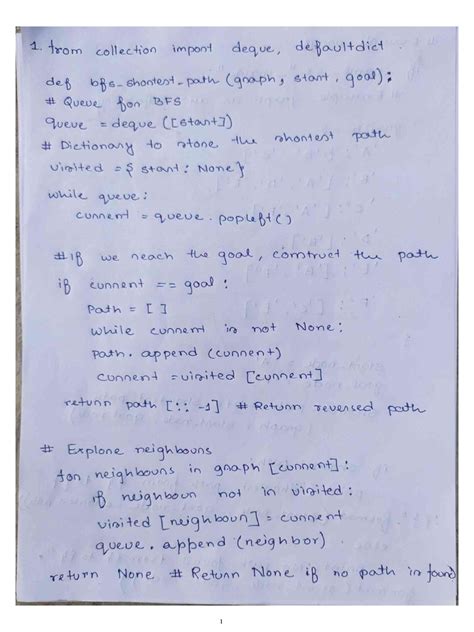 1. from collection import deque, defaultdict
def bfs_shortest_path (graph, start, goal);
# Queue for BFS
queue = deque ([start])
# Dictionary to store the shortest path
visited = { start: None}
while queue:
current = queue.popleft()
#If we reach the goal, construct the path
if current == goal:
Path = [ ]
while current is not None:
Path. append (current)
current = visited [current]
return path [:: -1] # Return reversed path
# Explore neighbours
for neighbours in graph [current]:
if neighbour not in visited:
visited [neighbour] = current
queue. append (neighbor).
return None # Return None if no path is found
1